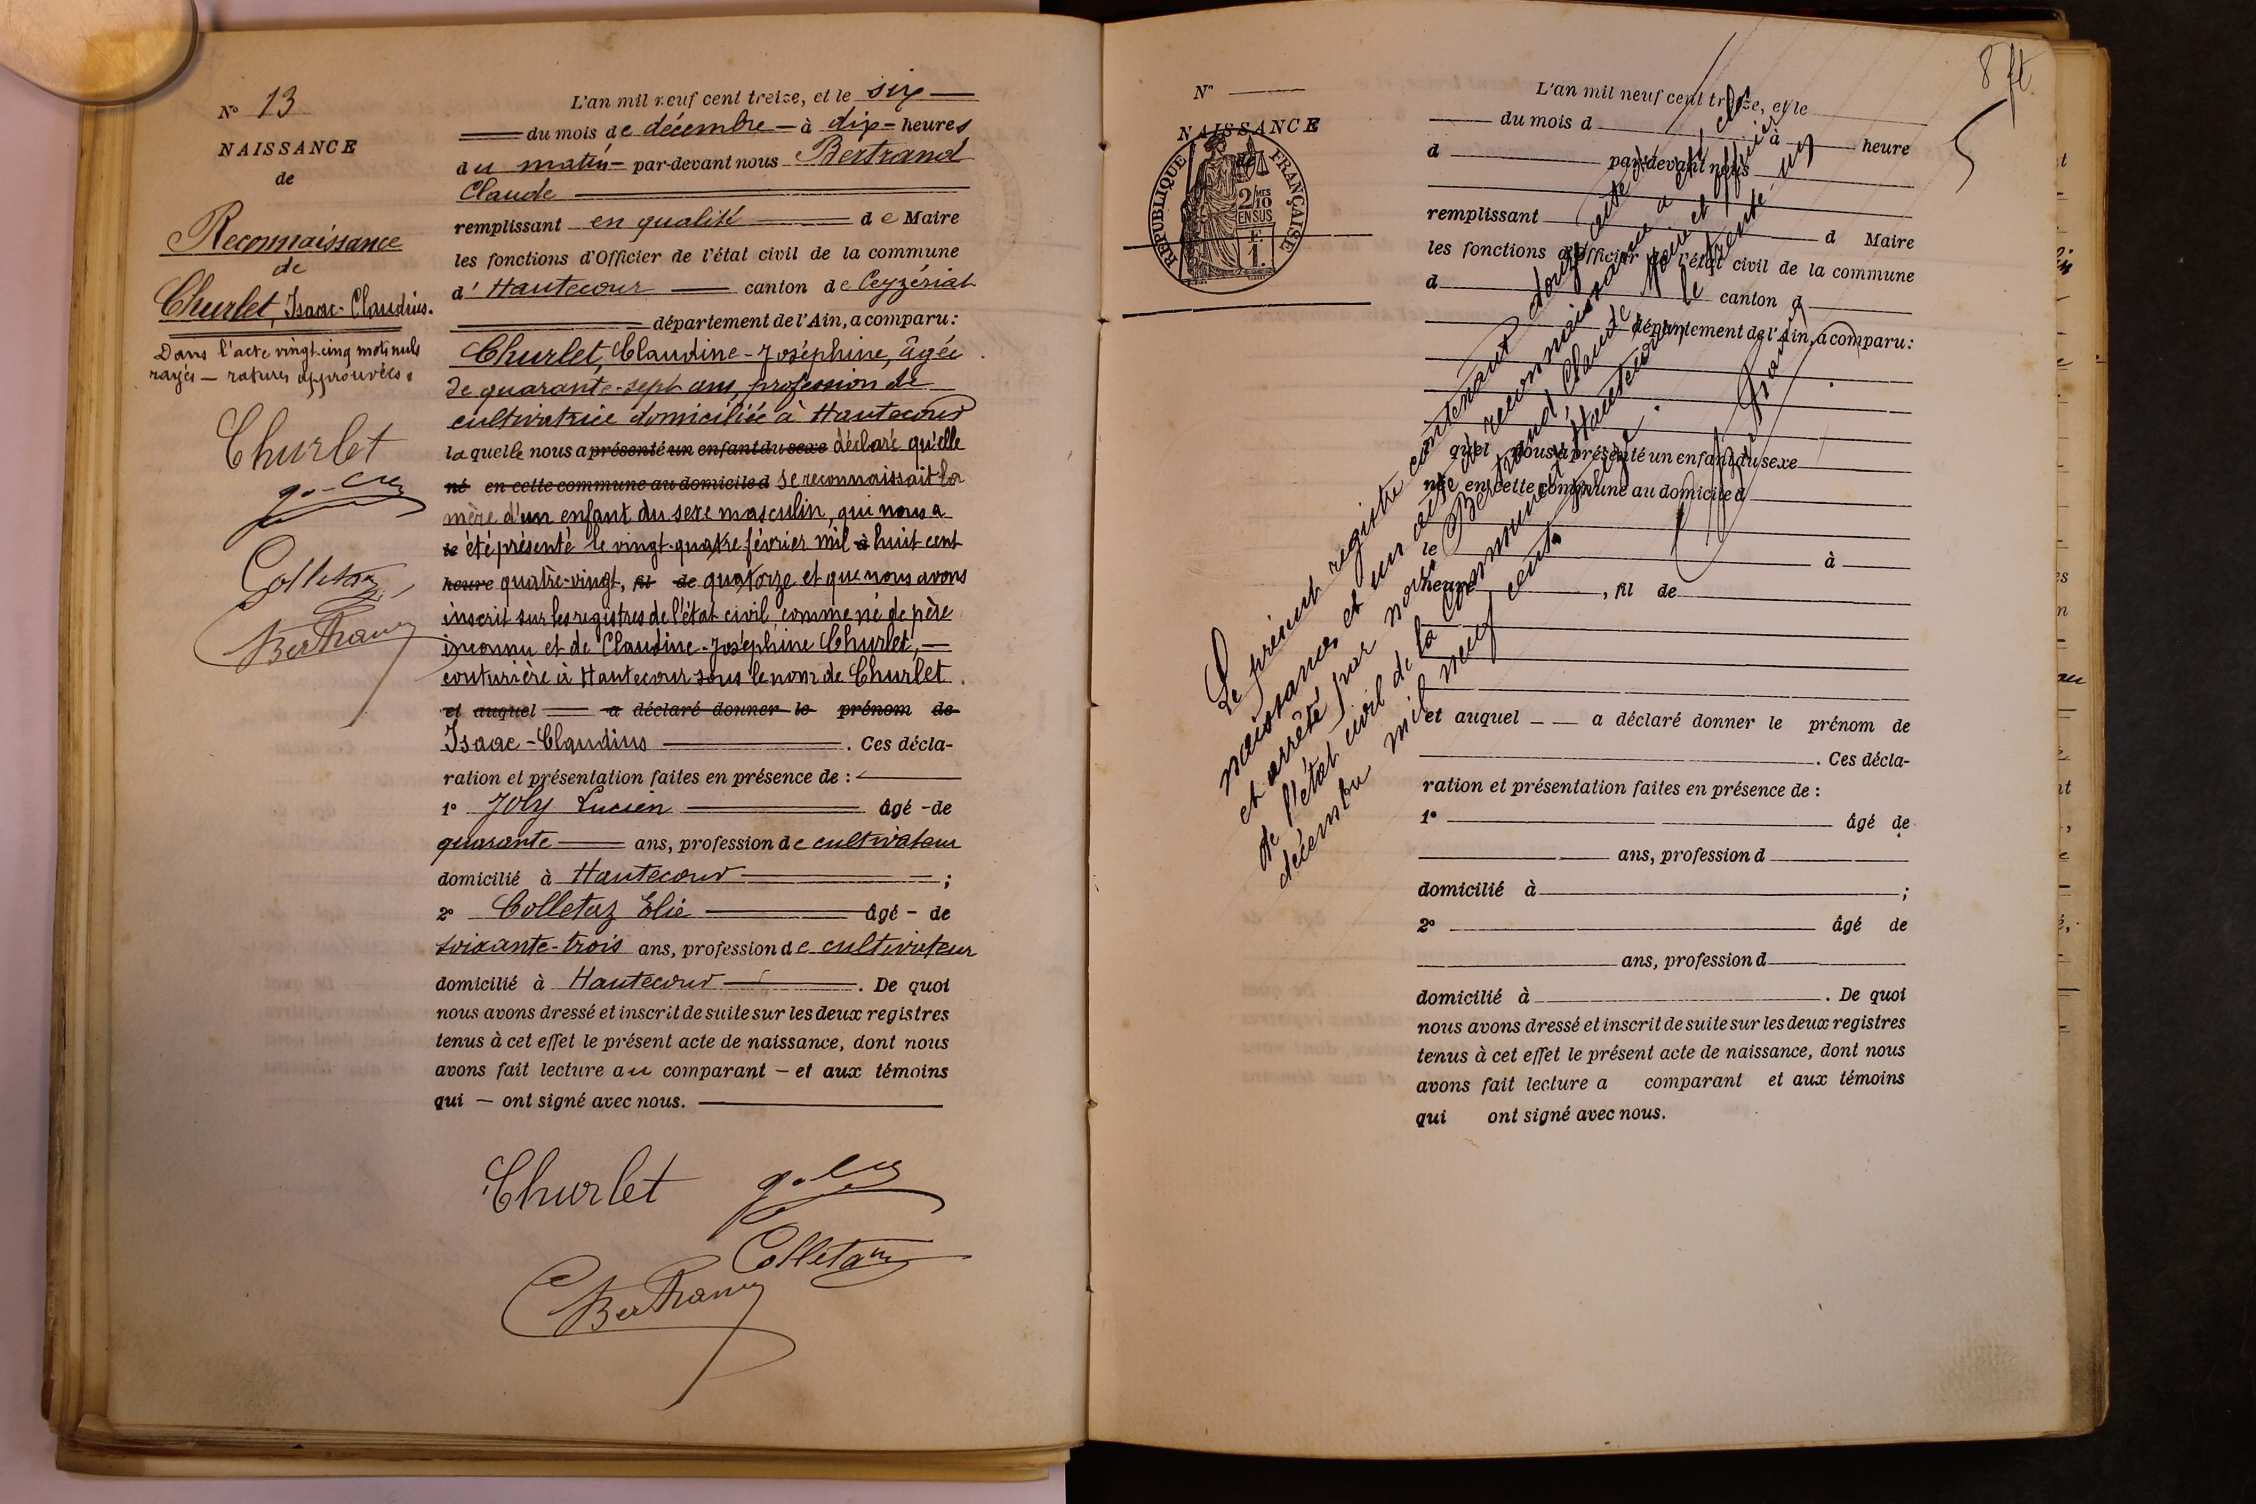 N° 13
NAISSANCE
de
Reconnaissance
de
Churlet, Isaac-Claudius.
Dans l'acte vingt-cinq mots nuls
rayés — ratures approuvées.
Churlet
Colletaz
Bertrand
L'an mil neuf cent treize, et le six
du mois de décembre à dix heures
du matin par-devant nous Bertrand
Claude
remplissant en qualité de Maire
les fonctions d'Officier de l'état civil de la commune
d'Hautecour canton de Ceyzériat
département de l'Ain, a comparu :
Churlet, Claudine-Joséphine, âgée
de quarante-sept ans, profession de
cultivatrice domiciliée à Hautecour
laquelle nous a présenté un enfant du sexe déclaré qu'elle
né en cette commune au domicile d se reconnaissait la
mère d'un enfant du sexe masculin, qui nous a
le été présenté le vingt-quatre février mil à huit cent
heure quatre-vingt, fil de quatorze et que nous avons
inscrit sur les registres de l'état civil comme né de père
inconnu et de Claudine-Joséphine Churlet, —
couturière à Hautecour sous le nom de Churlet
et auquel a déclaré donner le prénom de
Isaac-Claudius . Ces décla-
ration et présentation faites en présence de :
1° Joly Lucien âgé - de
quarante ans, profession de cultivateur
domicilié à Hautecour ;
2° Colletaz Elie âgé - de
soixante-trois ans, profession de cultivateur
domicilié à Hautecour . De quoi
nous avons dressé et inscrit de suite sur les deux registres
tenus à cet effet le présent acte de naissance, dont nous
avons fait lecture au comparant — et aux témoins
qui — ont signé avec nous.
Churlet
Colletaz
Bertrand
8 ft
N°
NAISSANCE
de
RÉPUBLIQUE FRANÇAISE
2/10 MES
EN SUS
F.
1.
L'an mil neuf cent treize, et le
du mois d à heure
d par-devant nous
remplissant d Maire
les fonctions d'Officier de l'état civil de la commune
d canton d
département de l'Ain, a comparu :
quel nous a présenté un enfant du sexe
né en cette commune au domicile d
le à
heure , fil de
et auquel a déclaré donner le prénom de
. Ces décla-
ration et présentation faites en présence de :
1° âgé de
ans, profession d
domicilié à ;
2° âgé de
ans, profession d
domicilié à . De quoi
nous avons dressé et inscrit de suite sur les deux registres
tenus à cet effet le présent acte de naissance, dont nous
avons fait lecture a comparant et aux témoins
qui ont signé avec nous.
Le présent registre contenant douze actes de
naissances et un acte de reconnaissance a été clos
et arrêté par nous Bertrand, Claude Maire et officier
de l'état civil de la commune d'Hautecour le trente un
décembre mil neuf cent treize.